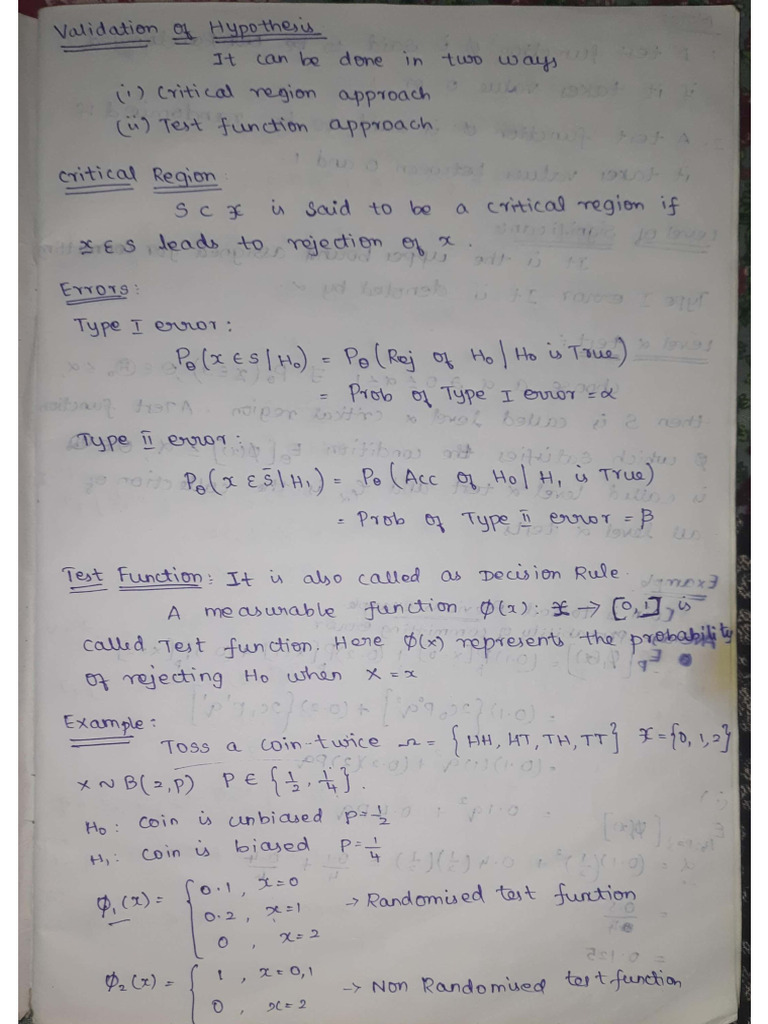 Validation of Hypothesis
It can be done in two ways
(i) Critical region approach
(ii) Test function approach.
Critical Region:
S ⊂ 𝔛 is said to be a critical region if
x ∈ S leads to rejection of x.
Errors:
Type I error:
Pθ(x ∈ S | H₀) = Pθ(Rej of H₀ | H₀ is True)
= Prob of Type I error = α
Type II error:
Pθ(x ∈ S̄ | H₁) = Pθ(Acc of H₀ | H₁ is True)
= Prob of Type II error = β
Test Function: It is also called as Decision Rule.
A measurable function φ(x): 𝔛 → [0,1], is
called Test function. Here φ(x) represents the probability
of rejecting H₀ when X = x
Example:
Toss a coin twice Ω = {HH, HT, TH, TT} 𝔛 = {0,1,2}
X ~ B(2,P) P ∈ {1/2, 1/4}.
H₀: coin is unbiased P=1/2
H₁: coin is biased P=1/4
φ₁(x) = { 0.1, x=0
0.2, x=1 → Randomised test function
0, x=2
φ₂(x) = { 1, x=0,1
→ Non Randomised test function
0, x=2